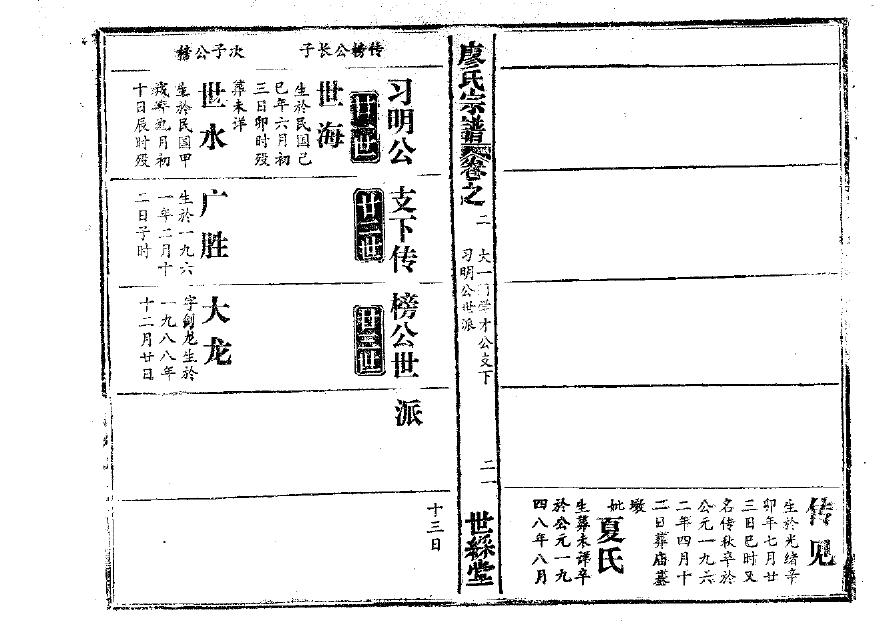 传见
生於光绪辛
卯年七月廿
三日巳时又
名传秋卒於
公元一九六
二年四月十
二日葬庙墓
墩
妣
夏氏
生葬未详卒
於公元一九
四八年八月
廖氏宗谱
卷之
二
大一门学才公支下
习明公世派
二一
世綵堂
十三日
习明公
支下传
榜公世
派
廿一世
廿二世
廿三世
传榜公长子
世海
生於民国己
巳年六月初
三日卯时殁
葬未洋
次子公榜
世水
生於民国甲
戌年九月初
十日辰时殁
广胜
生於一九六
一年二月十
二日子时
大龙
字剑龙生於
一九八八年
十二月廿日